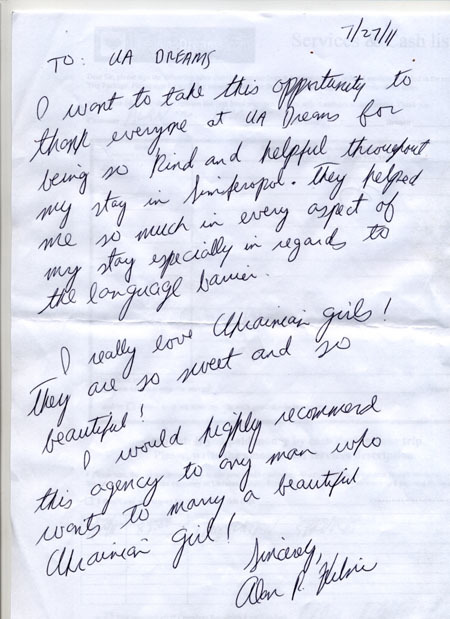 7/27/11
TO: UA DREAMS
I want to take this opportunity to
thank everyone at UA Dreams for
being so kind and helpful throughout
my stay in Simferopol. They helped
me so much in every aspect of
my stay especially in regards to
the language barrier.
I really love Ukrainian girls!
They are so sweet and so
beautiful!
I would highly recommend
this agency to any man who
wants to marry a beautiful
Ukrainian girl!
Sincerely,
Alan P.